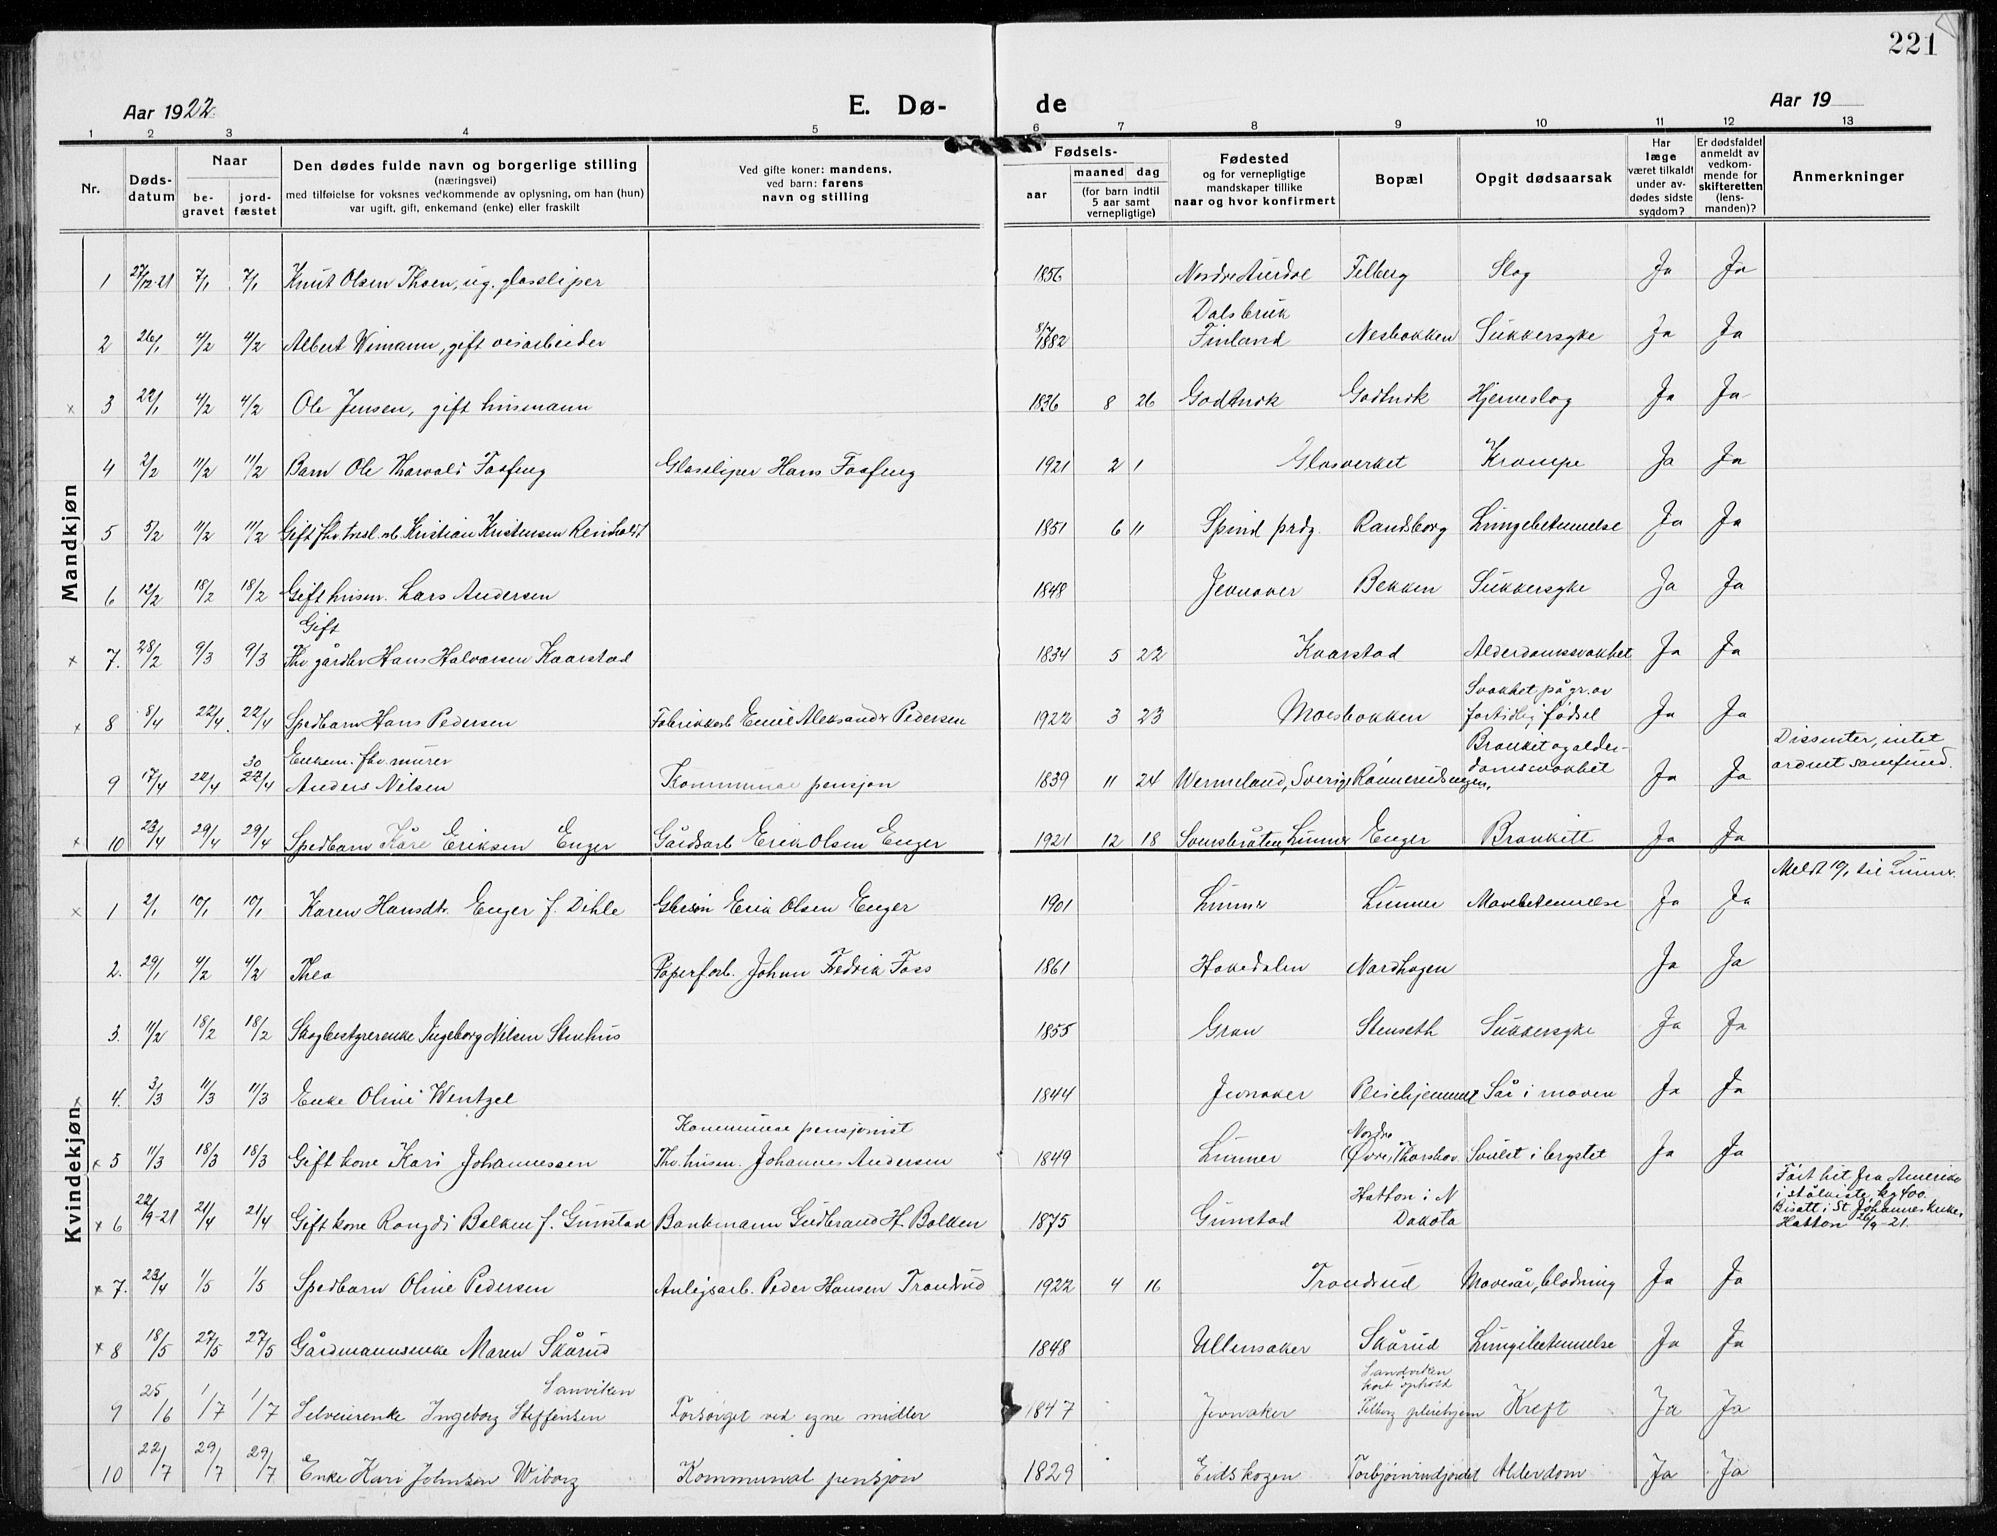 221
Aar 1922.
E. Dø-
de
Aar 19
1 2 3 4 5 6 7 8 9 10 11 12 13
Nr.
Døds-
datum
Naar
be-
gravet
jord-
fæstet
Den dødes fulde navn og borgerlige stilling
(næringsvei)
med tilføielse for voksnes vedkommende av oplysning, om han (hun)
var ugift, gift, enkemand (enke) eller fraskilt
Ved gifte koner: mandens,
ved barn: farens
navn og stilling
Fødsels-
aar
maaned dag
(for barn indtil
5 aar samt
vernepligtige)
Fødested
og for vernepligtige
mandskaper tillike
naar og hvor konfirmert
Bopæl
Opgit dødsaarsak
Har
læge
været tilkaldt
under av-
dødes sidste
sygdom?
Er dødsfaldet
anmeldt av
vedkom-
mende for
skifteretten
(lens-
manden)?
Anmerkninger
Mandkjøn
1 27/12-21 7/1 7/1 Knut Olsen Thoen, ug. glassliper 1856 Nordre Aurdal Felberg Slag Ja Ja
Dalsbruk
2 26/1 4/2 4/2 Albert Wimann, gift veiarbeider 8/7 1882 Finland Nesbakken Sukkersyke Ja Ja
x 3 22/1 4/2 4/2 Ole Jensen, gift husmann 1836 8 26 Godtnok Godtnok Hjerneslag Ja Ja
4 2/2 11/2 11/2 Barn Ole Thorvald Fosseng Glassliper Hans Fosseng 1921 2 1 Glasverket Krampe Ja Ja
5 5/2 11/2 11/2 Gift fhv. tresl. arb Kristian Kristensen Reinholt 1851 6 11 Spind prdg. Randsborg Lungebetennelse Ja Ja
6 12/2 18/2 18/2 Gift husm. Lars Andersen 1848 Jevnaker Bekken Sukkersyke Ja Ja
Gift
x 7. 28/2 9/3 9/3 Fhv gårdbr Hans Halvorsen Kaarstad 1834 5 22 Kaarstad Alderdomssvakhet Ja Ja
Svakhet på gr. av
x 8 8/4 22/4 22/4 Spedbarn Hans Pedersen Fabrikkarb Emil Aleksander Pedersen 1922 3 23 Moesbakken fortidlig fødsel Ja Ja
Enkem. fhv. murer 30 Bronkit og alder- Dissenter, intet
9 17/4 22/4 22/4 Anders Nilsen Kommunal pensjon 1839 11 24 Wermeland, Sverige Rønnerudhagen, domssvakhet Ja Ja ordnet samfund.
x 10 23/4 29/4 29/4 Spedbarn Kåre Eriksen Enger Gårdsarb Erik Olsen Enger 1921 12 18 Svensbråten, Lunner Enger Bronkitt Ja Ja
Kvindekjøn
Meldt 19/1 til Lunner.
x 1 2/1 10/1 10/1 Karen Hansdtr. Enger f. Dihle Erik Olsen Enger 1901 Lunner Lunner Mavebetennelse Ja Ja
2. 29/1 4/2 4/2 Thea Papirfarb. Johan Fredrik Foss 1861 Hakedalen Nordhagen Ja Ja
3. 11/2 18/2 18/2 Skogbestyrerenke Ingeborg Nilsen Stenhus 1855 Gran Stenseth Sukkersyke Ja Ja
x 4. 3/3 11/3 11/3 Enke Oline Wentzel 1844 Jevnaker Pleiehjemmet Sår i maven Ja Ja
Kommunal pensjonist Nordre
x 5 11/3 18/3 18/3 Gift kone Kari Johannessen Fhv. husm. Johannes Andersen 1849 Lunner (Øvre) Thorshov. Svulst i brystet Ja Ja
Ført hit fra Amerika
i stålkiste, kg 400.
Hatton i N Bisatt i St. Johanneskirken
x 6 22/9-21 21/4 21/4 Gift kone Rangdi Balken f. Gunstad Bankmann Gudbrand H. Balken 1875 Gunstad Dakota Hatton 26/9-21.
x 7. 23/4 1/5 1/5 Spedbarn Oline Pedersen Anlegsarb. Peder Hansen Trondrud 1922 4 16 Trondrud Mavesår, blødning Ja Ja
x 8 18/5 27/5 27/5 Gårdmannsenke Maren Skårud 1848 Ullensaker Skårud Lungebetennelse Ja Ja
Sanviken Sandviken
kort ophold
9 25/6 1/7 1/7 Selveierenke Ingeborg Steffensen Forsørget ved egne midler 1847 Jevnaker Felberg pleiehjem Kreft Ja Ja
10 22/7 29/7 29/7 Enke Kari Johnsen Wiborg Kommunal pensjon 1829 Eidskogen Torbjørnrudjordet Alderdom Ja Ja